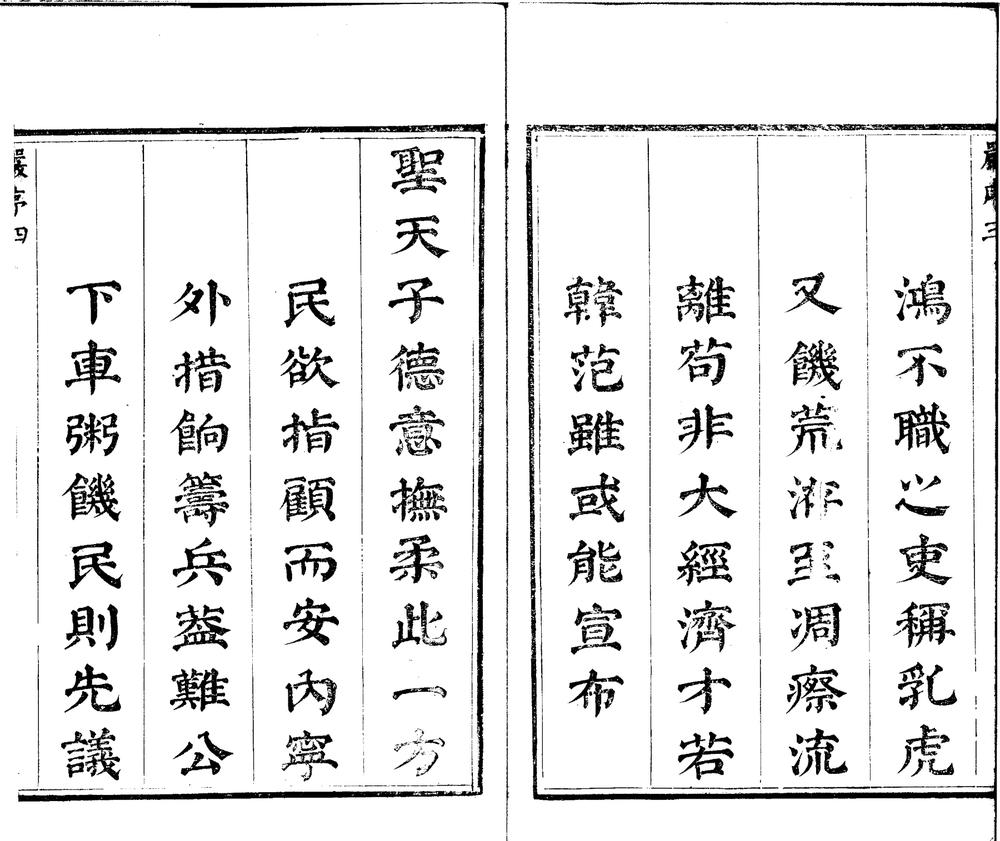 嚴序三
鴻不職之吏稱乳虎
又饑荒洊至凋瘵流
離苟非大經濟才若
韓范雖或能宣布
聖天子德意撫柔此一方
民欲指顧而安內寧
外措餉籌兵葢難公
下車粥饑民則先議
嚴序四